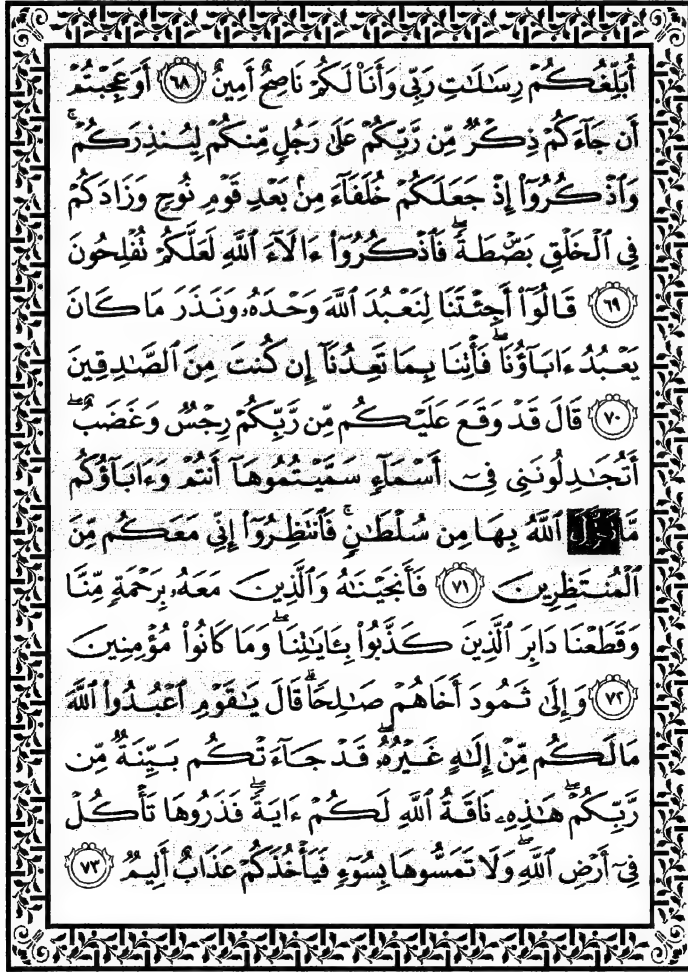 أُبَلِّغُكُمْ رِسَٰلَٰتِ رَبِّي وَأَنَا۠ لَكُمْ نَاصِحٌ أَمِينٌ ٦٨ أَوَعَجِبْتُمْ
أَن جَآءَكُمْ ذِكْرٌ مِّن رَّبِّكُمْ عَلَىٰ رَجُلٍ مِّنكُمْ لِيُنذِرَكُمْ ۚ
وَٱذْكُرُوٓا۟ إِذْ جَعَلَكُمْ خُلَفَآءَ مِنۢ بَعْدِ قَوْمِ نُوحٍ وَزَادَكُمْ
فِي ٱلْخَلْقِ بَصْۜطَةً ۖ فَٱذْكُرُوٓا۟ ءَالَآءَ ٱللَّهِ لَعَلَّكُمْ تُفْلِحُونَ
٦٩ قَالُوٓا۟ أَجِئْتَنَا لِنَعْبُدَ ٱللَّهَ وَحْدَهُۥ وَنَذَرَ مَا كَانَ
يَعْبُدُ ءَابَآؤُنَا ۖ فَأْتِنَا بِمَا تَعِدُنَآ إِن كُنتَ مِنَ ٱلصَّٰدِقِينَ
٧٠ قَالَ قَدْ وَقَعَ عَلَيْكُم مِّن رَّبِّكُمْ رِجْسٌ وَغَضَبٌ ۖ
أَتُجَٰدِلُونَنِي فِيٓ أَسْمَآءٍ سَمَّيْتُمُوهَآ أَنتُمْ وَءَابَآؤُكُم
مَّا نَزَّلَ ٱللَّهُ بِهَا مِن سُلْطَٰنٍ ۚ فَٱنتَظِرُوٓا۟ إِنِّي مَعَكُم مِّنَ
ٱلْمُنتَظِرِينَ ٧١ فَأَنجَيْنَٰهُ وَٱلَّذِينَ مَعَهُۥ بِرَحْمَةٍ مِّنَّا
وَقَطَعْنَا دَابِرَ ٱلَّذِينَ كَذَّبُوا۟ بِـَٔايَٰتِنَا ۖ وَمَا كَانُوا۟ مُؤْمِنِينَ
٧٢ وَإِلَىٰ ثَمُودَ أَخَاهُمْ صَٰلِحًا ۗ قَالَ يَٰقَوْمِ ٱعْبُدُوا۟ ٱللَّهَ
مَا لَكُم مِّنْ إِلَٰهٍ غَيْرُهُۥ ۖ قَدْ جَآءَتْكُم بَيِّنَةٌ مِّن
رَّبِّكُمْ ۖ هَٰذِهِۦ نَاقَةُ ٱللَّهِ لَكُمْ ءَايَةً ۖ فَذَرُوهَا تَأْكُلْ
فِيٓ أَرْضِ ٱللَّهِ ۖ وَلَا تَمَسُّوهَا بِسُوٓءٍ فَيَأْخُذَكُمْ عَذَابٌ أَلِيمٌ ٧٣